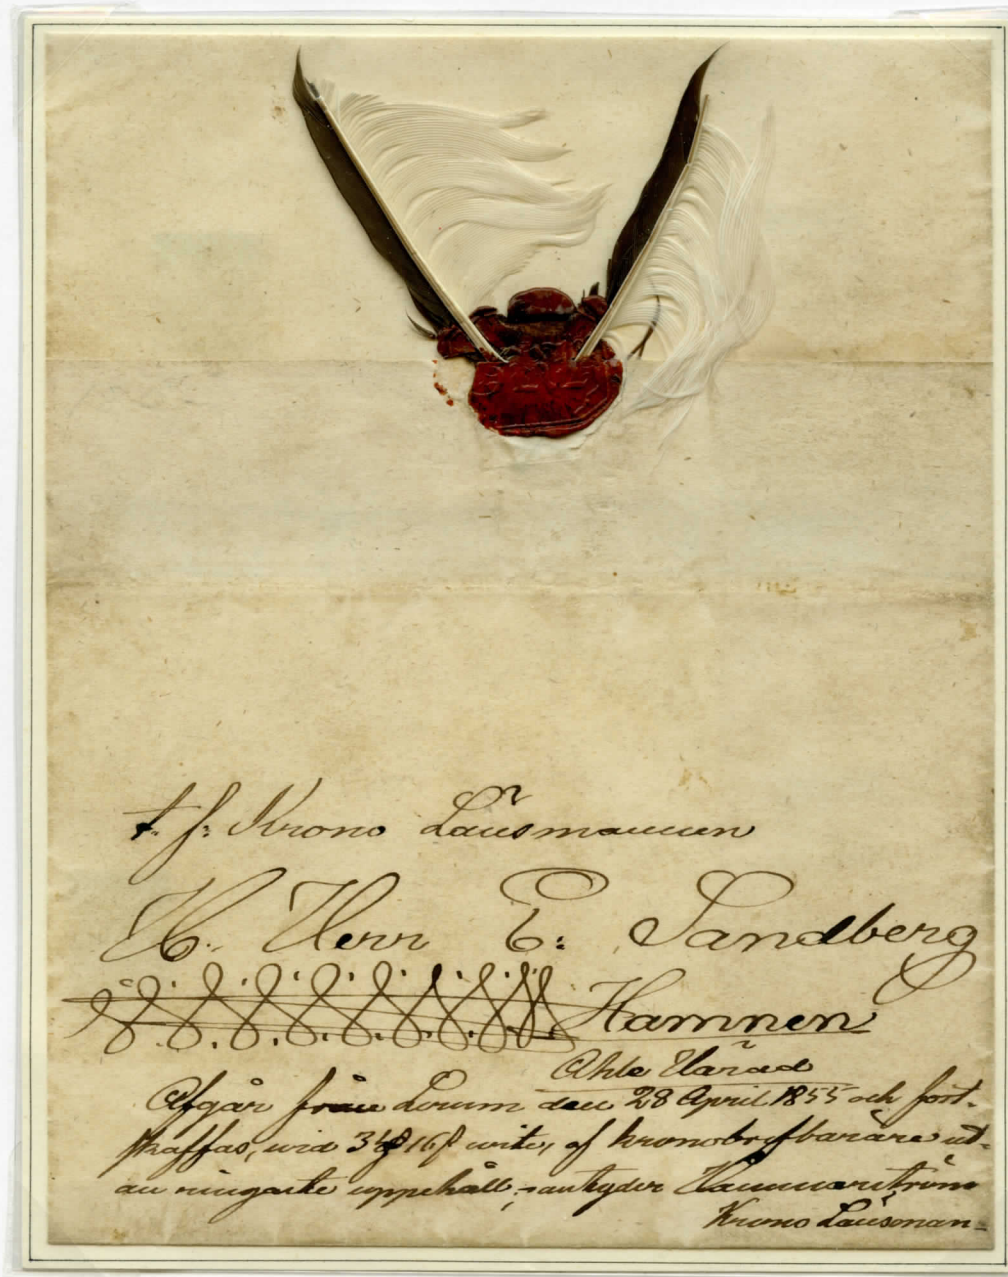 t. f. Krono Länsmannen
H. Herr E. Sandberg
Hamnen
Ahle Härad
Afgår från Lorum den 28 April 1855 och fort-
skaffas, wid 3 16 wite, af kronobrefbärare ut-
an ringaste uppehåll; antyder Hammarström
Krono Länsman